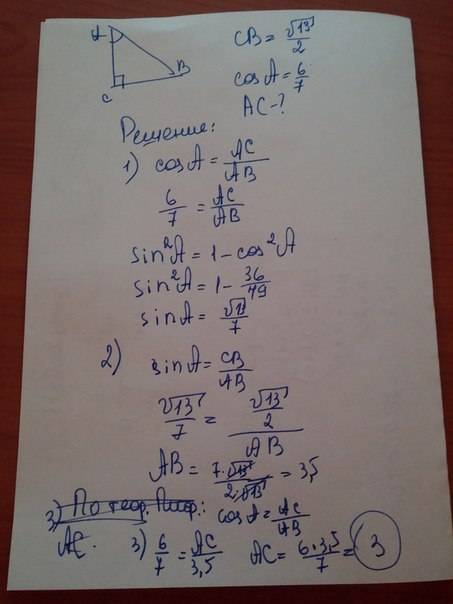 A
B
C
CB = √13/2
cosA = 6/7
AC - ?
Решение:
1) cosA = AC/AB
6/7 = AC/AB
sin²A = 1 - cos²A
sin²A = 1 - 36/49
sinA = √13/7
2) sinA = CB/AB
√13/7 = (√13/2)/AB
AB = 7·√13/2·√13 = 3,5
3) По теор. Пиф.: cosA = AC/AB
AC. 3) 6/7 = AC/3,5 AC = 6·3,5/7 = 3